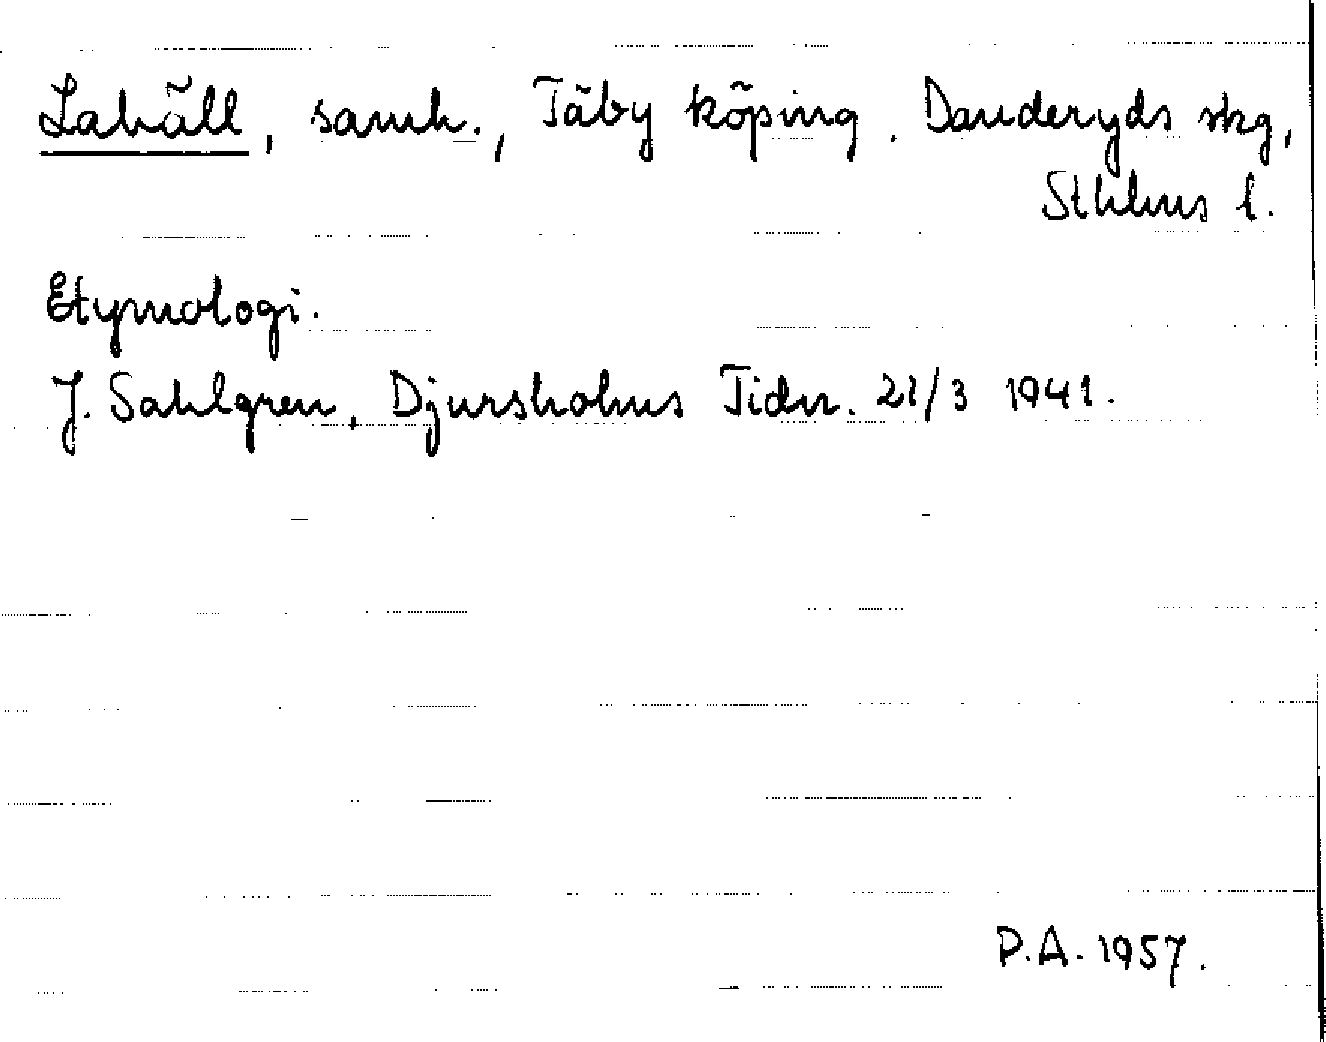 Lahäll, samh., Täby köping. Danderyds skg,
Sthlms l.
Etymologi.
J. Sahlgren, Djursholms Tidn. 21/3 1941.
P.A. 1957.